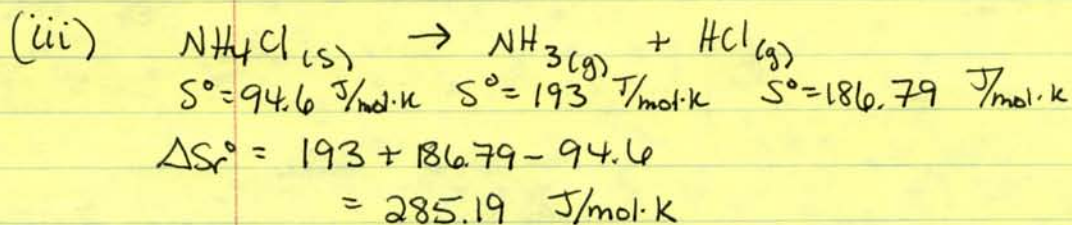 (iii) NH4Cl (s) → NH3(g) + HCl (g)
S° = 94.6 J/mol·K S° = 193 J/mol·K S° = 186.79 J/mol·K
ΔSr° = 193 + 186.79 - 94.6
= 285.19 J/mol·K